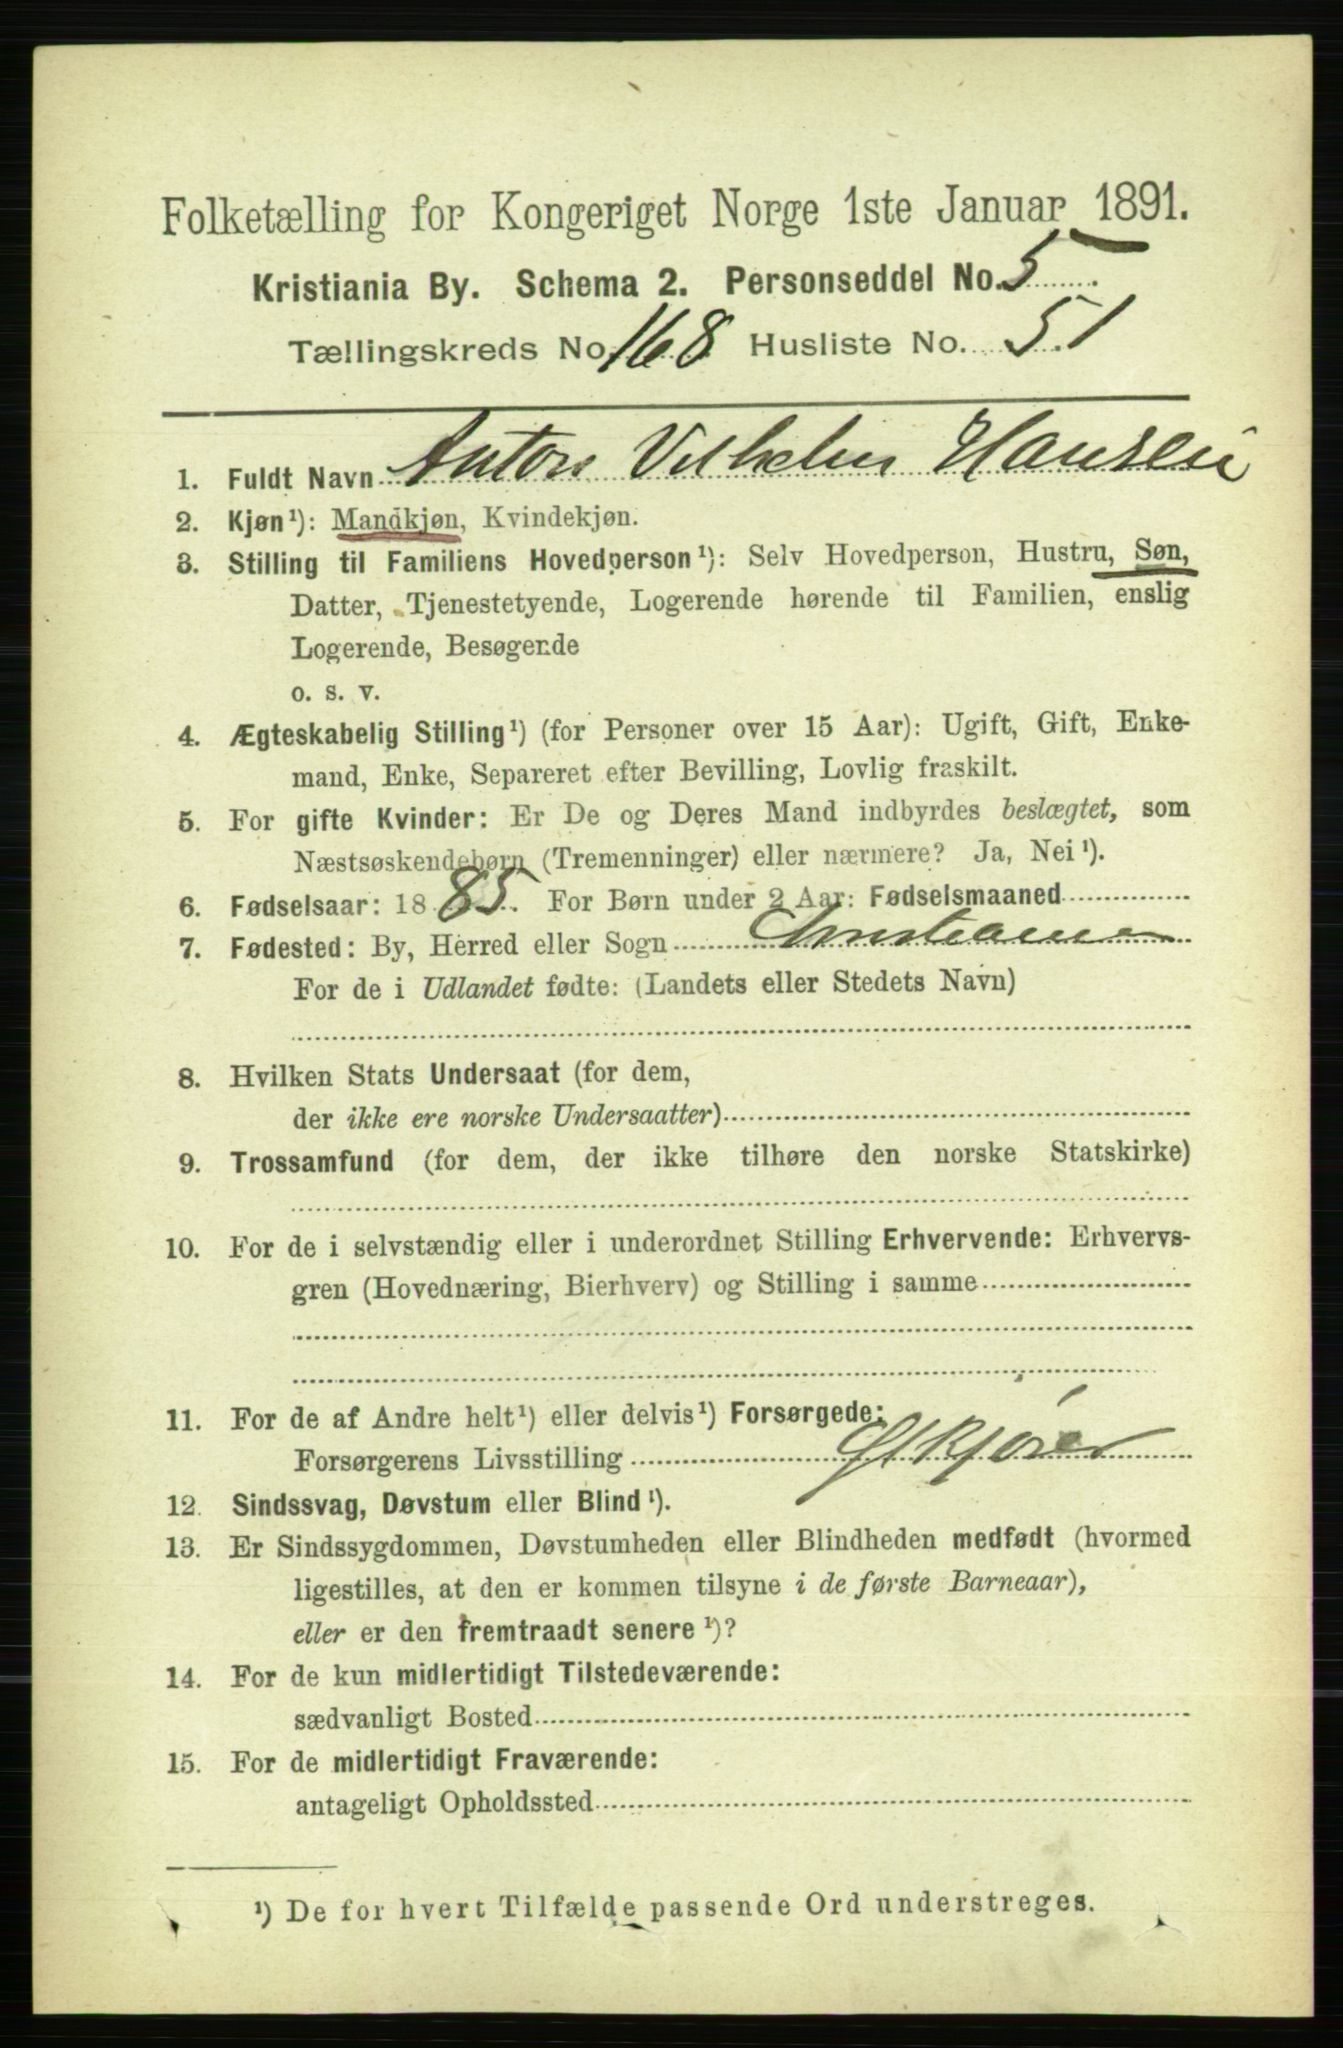 Folketælling for Kongeriget Norge 1ste Januar 1891.
Kristiania By. Schema 2. Personseddel No. 5
Tællingskreds No. 168 Husliste No. 51
1. Fuldt Navn Anton Vilhelm Hansen
2. Kjøn¹): Mandkjøn, Kvindekjøn.
3. Stilling til Familiens Hovedperson¹): Selv Hovedperson, Hustru, Søn,
Datter, Tjenestetyende, Logerende hørende til Familien, enslig
Logerende, Besøgende
o. s. v.
4. Ægteskabelig Stilling¹) (for Personer over 15 Aar): Ugift, Gift, Enke-
mand, Enke, Separeret efter Bevilling, Lovlig fraskilt.
5. For gifte Kvinder: Er De og Deres Mand indbyrdes beslægtet, som
Næstsøskendebørn (Tremenninger) eller nærmere? Ja, Nei¹).
6. Fødselsaar: 1885. For Børn under 2 Aar: Fødselsmaaned
7. Fødested: By, Herred eller Sogn Christiania
For de i Udlandet fødte: (Landets eller Stedets Navn)
8. Hvilken Stats Undersaat (for dem,
der ikke ere norske Undersaatter)
9. Trossamfund (for dem, der ikke tilhøre den norske Statskirke)
10. For de i selvstændig eller i underordnet Stilling Erhvervende: Erhvervs-
gren (Hovednæring, Bierhverv) og Stilling i samme
11. For de af Andre helt¹) eller delvis¹) Forsørgede:
Forsørgerens Livsstilling
12. Sindssvag, Døvstum eller Blind¹).
13. Er Sindssygdommen, Døvstumheden eller Blindheden medfødt (hvormed
ligestilles, at den er kommen tilsyne i de første Barneaar),
eller er den fremtraadt senere¹)?
14. For de kun midlertidigt Tilstedeværende:
sædvanligt Bosted
15. For de midlertidigt Fraværende:
antageligt Opholdssted
¹) De for hvert Tilfælde passende Ord understreges.